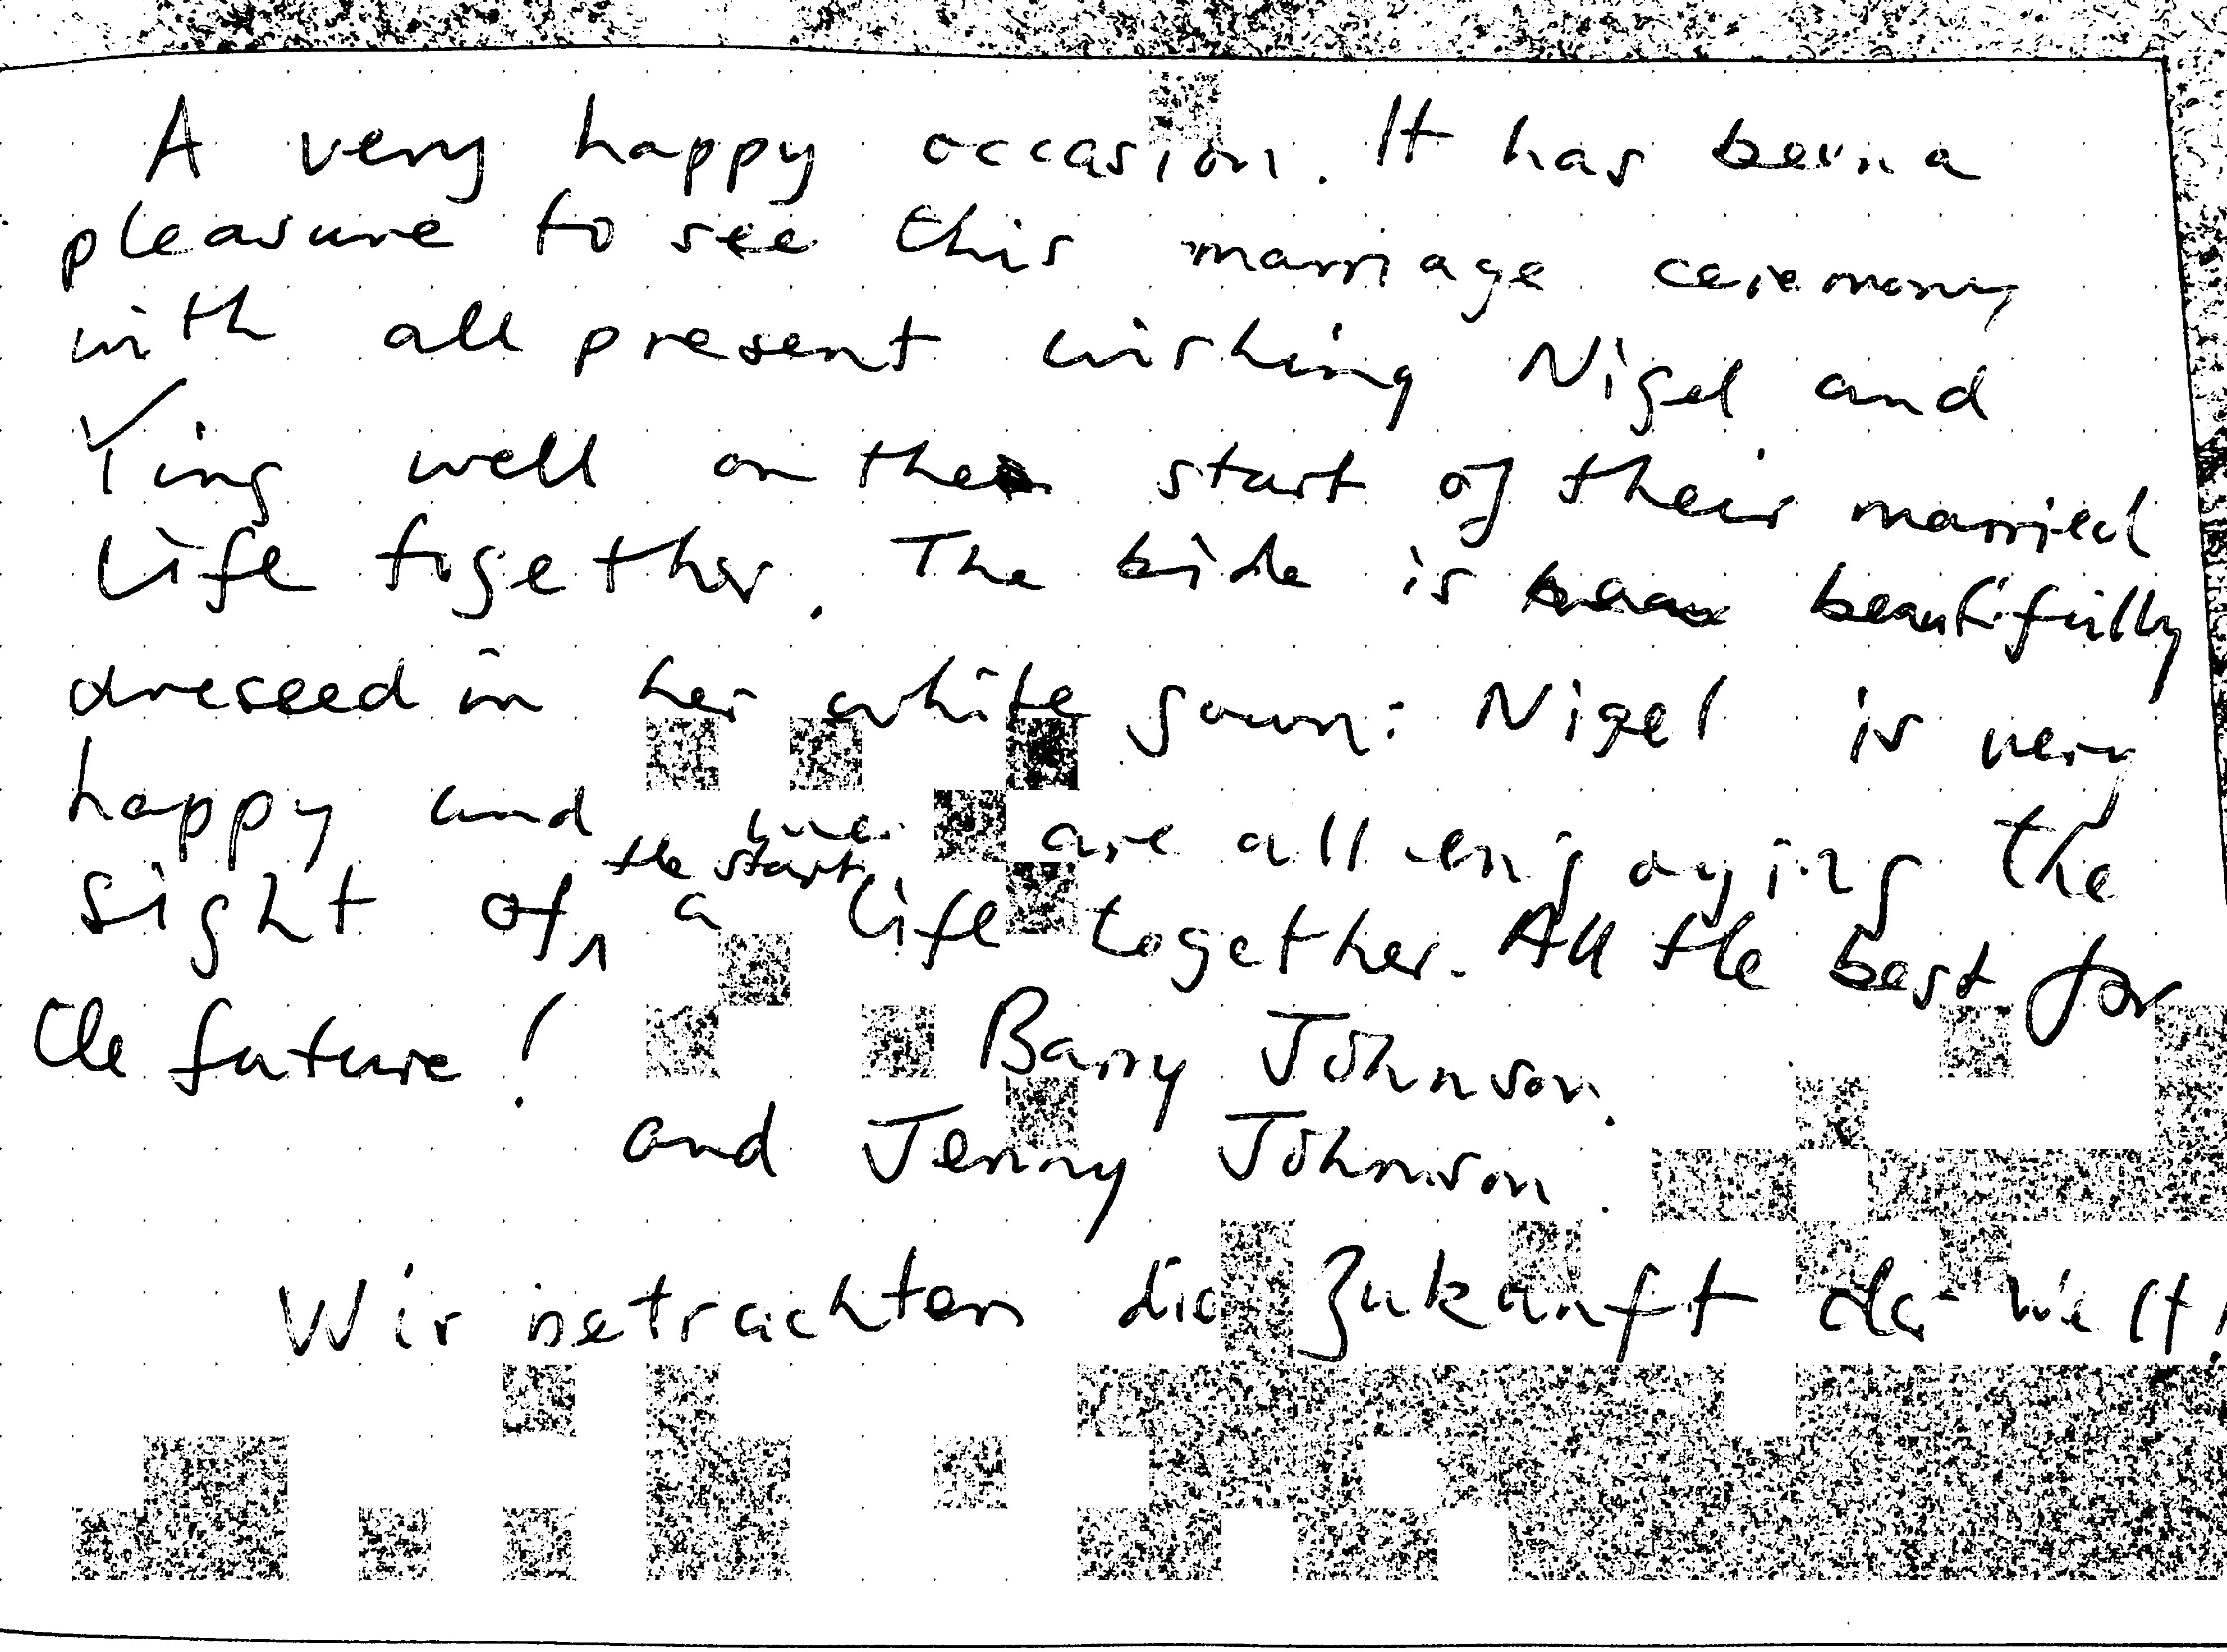 A very happy occasion. It has been a
pleasure to see this marriage ceremony
with all present wishing Nigel and
Ying well on the start of their married
life together. The bride is beautifully
dressed in her white gown: Nigel is very
happy and we are all enjoying the
sight of the start a life together. All the best for
the future! Barry Johnson.
and Jenny Johnson.
Wir betrachten die Zukunft der Welt!